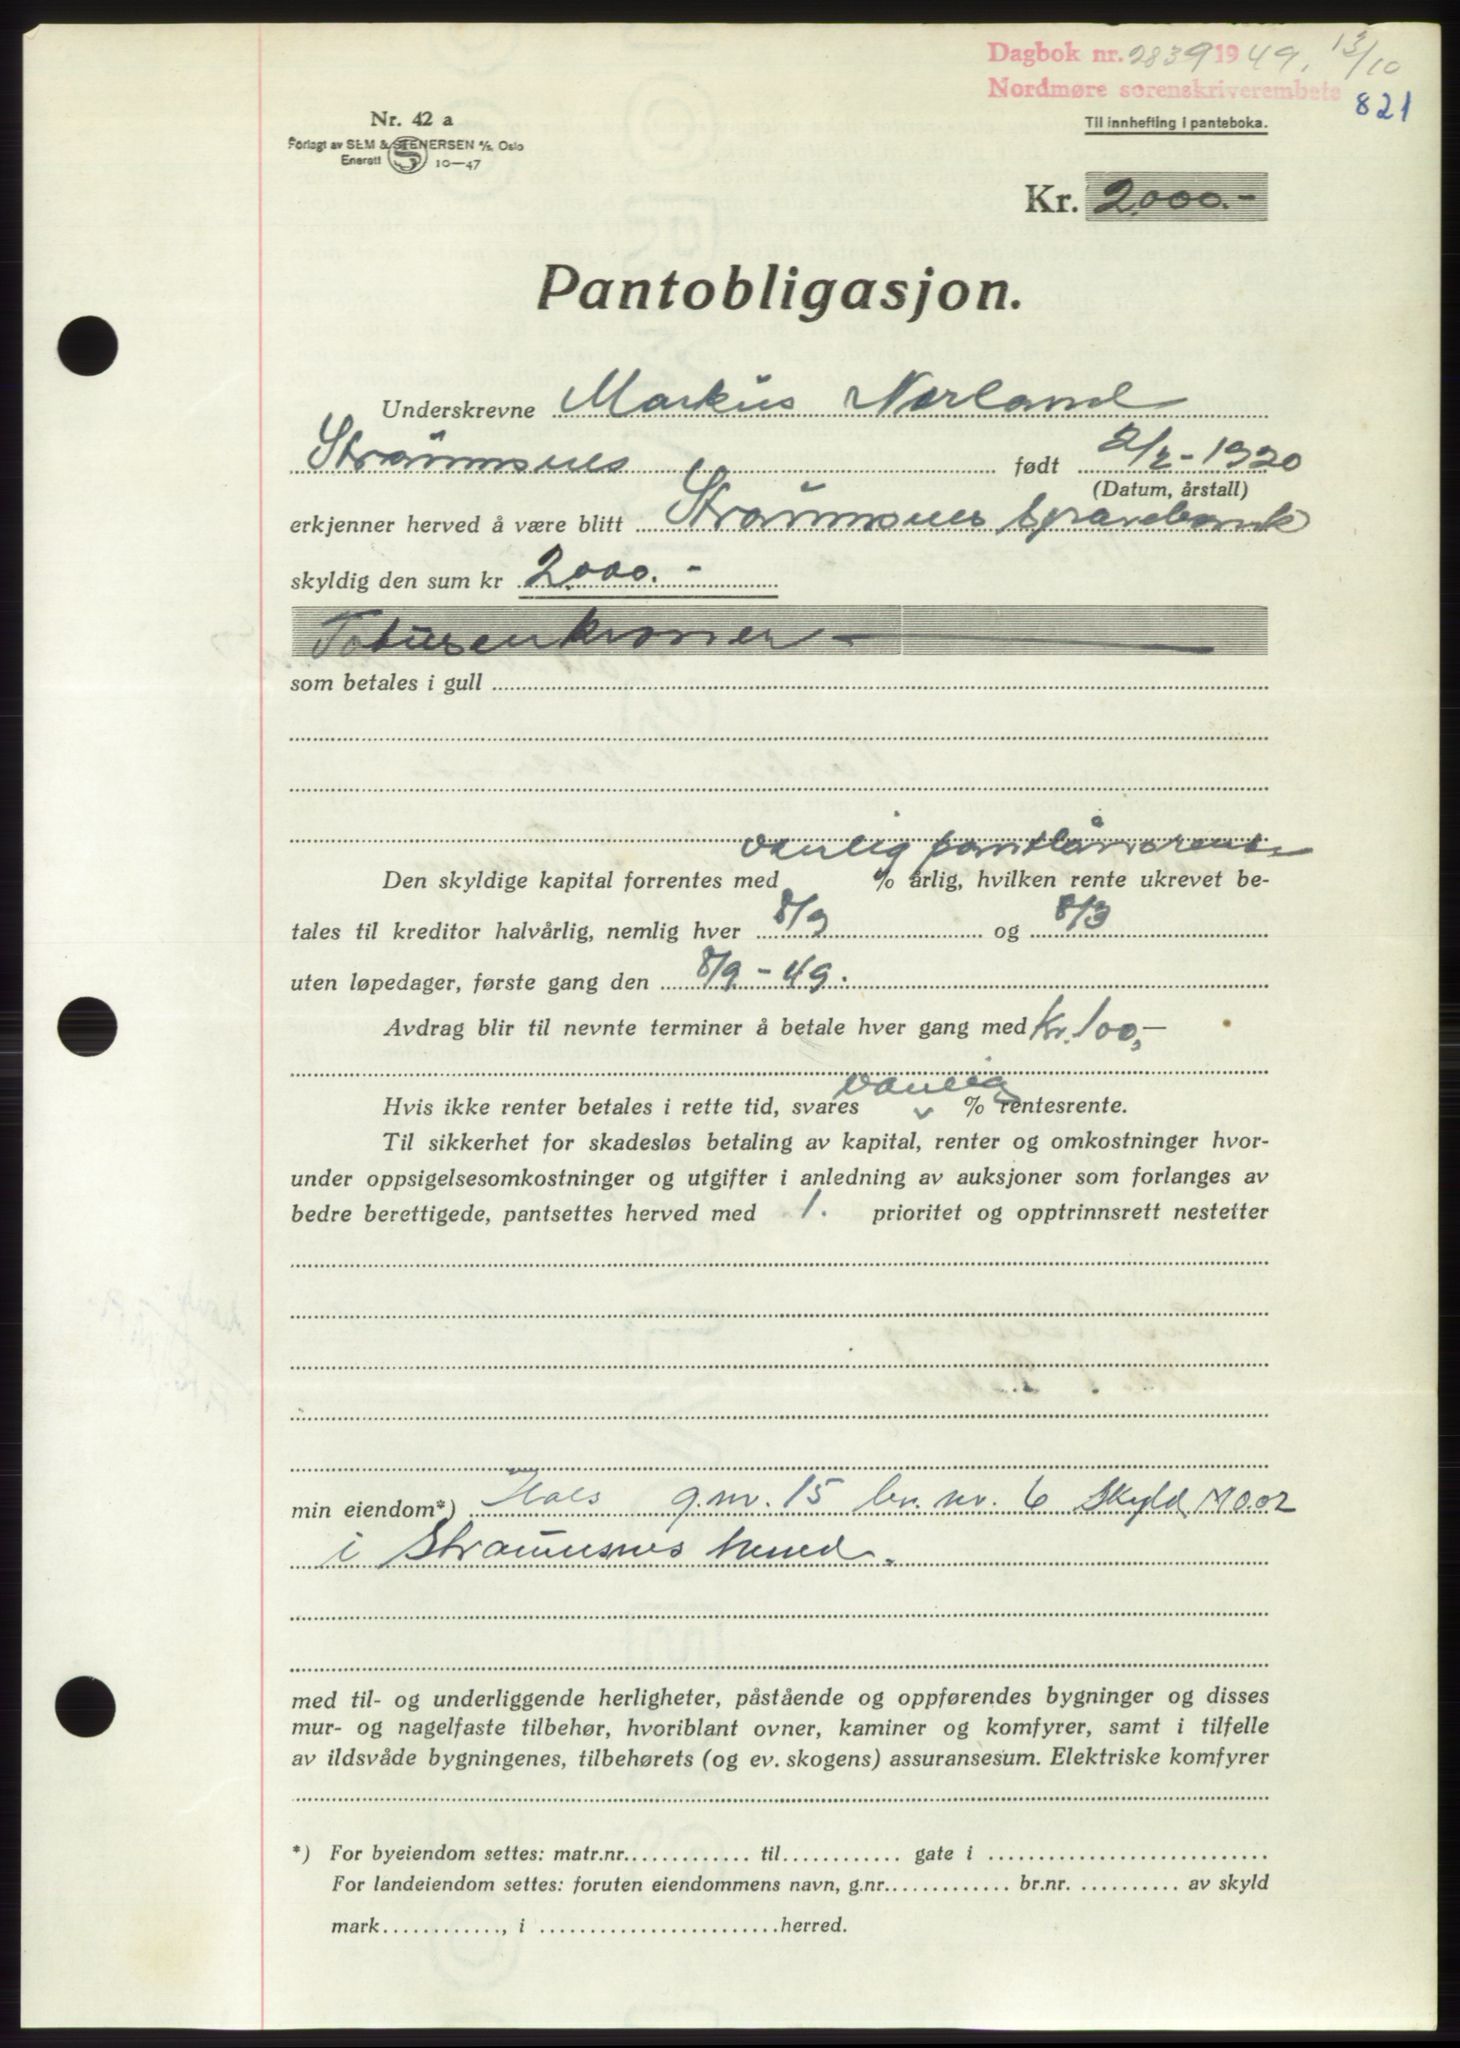 Dagbok nr. 2839 1949, 13/10
Nordmøre sorenskriverembete
821
Nr. 42 a
Til innhefting i panteboka.
Forlagt av SEM & STENERSEN A/S, Oslo
Enerett 10—47
Kr. 2000.-
Pantobligasjon.
Underskrevne Markus Norland
Straumsnes født 2/2-1920
(Datum, årstall)
erkjenner herved å være blitt Straumsnes Sparebank
skyldig den sum kr 2000.-
Totusenkroner —
som betales i gull
vanlig pantlånsrente
Den skyldige kapital forrentes med % årlig, hvilken rente ukrevet be-
tales til kreditor halvårlig, nemlig hver 8/9 og 8/3
uten løpedager, første gang den 8/9-49.
Avdrag blir til nevnte terminer å betale hver gang med Kr. 100,-
vanlig
Hvis ikke renter betales i rette tid, svares % rentesrente.
Til sikkerhet for skadesløs betaling av kapital, renter og omkostninger hvor-
under oppsigelsesomkostninger og utgifter i anledning av auksjoner som forlanges av
bedre berettigede, pantsettes herved med 1. prioritet og opptrinnsrett nestetter
min eiendom*) Hals g.nr. 15 br. nr. 6 Skyld M 0.02
i Straumsnes herred.
med til- og underliggende herligheter, påstående og oppførendes bygninger og disses
mur- og nagelfaste tilbehør, hvoriblant ovner, kaminer og komfyrer, samt i tilfelle
av ildsvåde bygningenes, tilbehørets (og ev. skogens) assuransesum. Elektriske komfyrer
*) For byeiendom settes: matr.nr. til gate i
For landeiendom settes: foruten eiendommens navn, g.nr. br.nr. av skyld
mark , i herred.